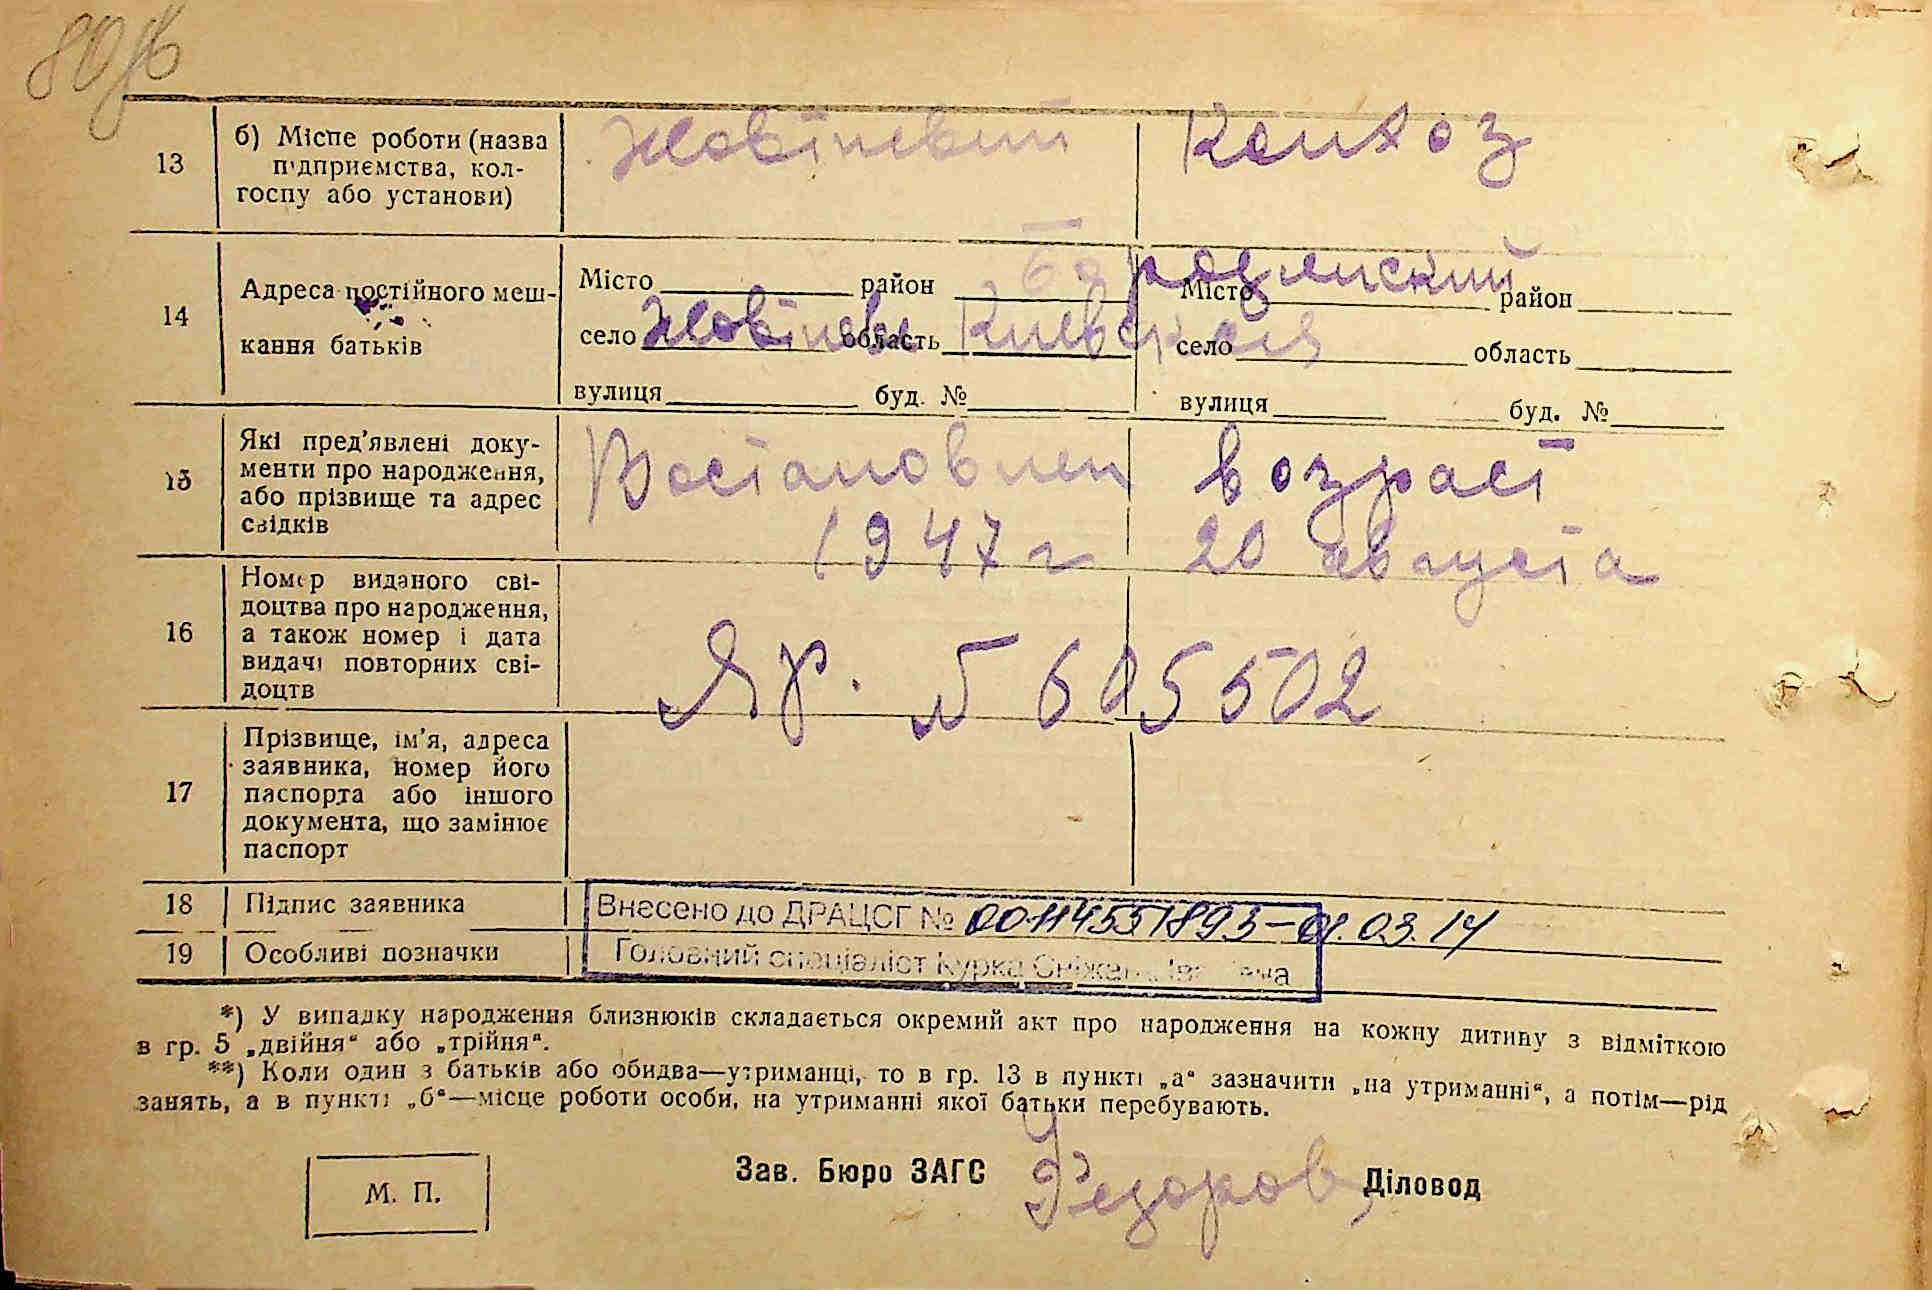 80 об
13
б) Місце роботи (назва
підприємства, кол-
госпу або установи)
Жовтневий Колхоз
14
Адреса постійного меш-
кання батьків
Місто район Бородянский
село Жовтневе область Киевская
вулиця буд. №
Місто район
село область
вулиця буд. №
15
Які пред'явлені доку-
менти про народження,
або прізвище та адрес
свідків
Востановлен возраст
1947 г 20 августа
16
Номер виданого сві-
доцтва про народження,
а також номер і дата
видачі повторних сві-
доцтв
ЯР. № 605502
17
Прізвище, ім'я, адреса
заявника, номер його
паспорта або іншого
документа, що замінює
паспорт
18 Підпис заявника
19 Особливі позначки
Внесено до ДРАЦСГ № 00114551893-01.03.14
Головний спеціаліст Курка Сніжана Іванівна
*) У випадку народження близнюків складається окремий акт про народження на кожну дитину з відміткою
в гр. 5 „двійня“ або „трійня“.
**) Коли один з батьків або обидва—утриманці, то в гр. 13 в пункті „а“ зазначити „на утриманні“, а потім—рід
занять, а в пункті „б“—місце роботи особи, на утриманні якої батьки перебувають.
М. П.
Зав. Бюро ЗАГС Федоров Діловод